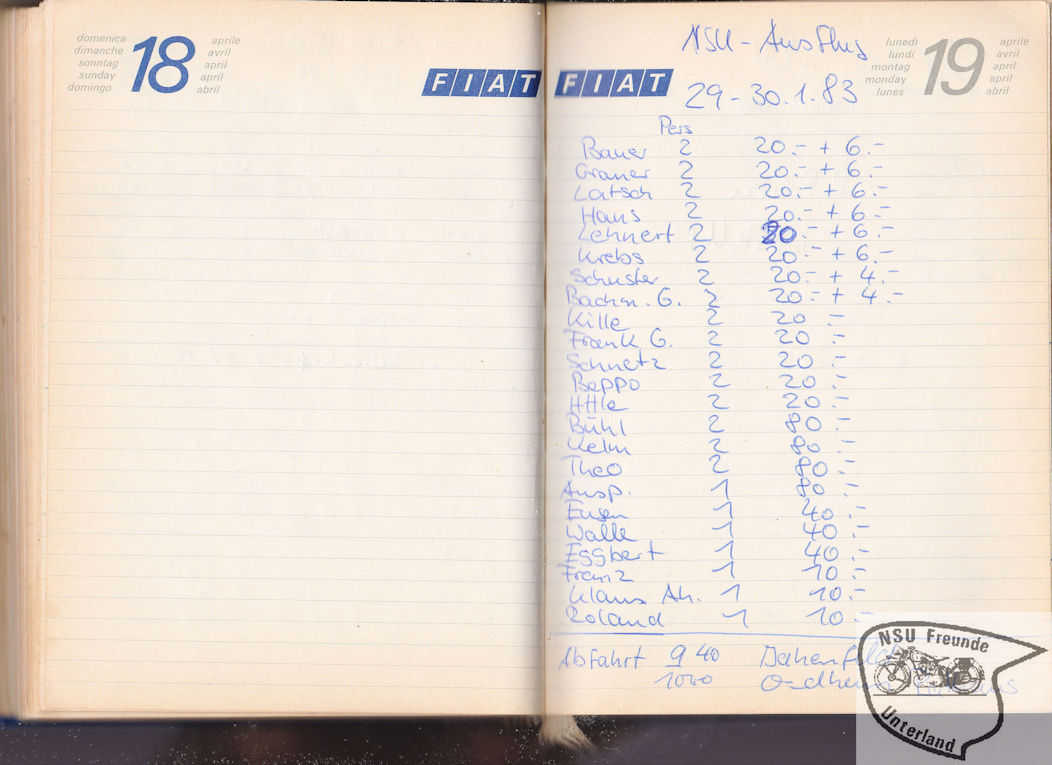 domenica
dimanche
sonntag
sunday
domingo
18
aprile
avril
april
april
abril
FIAT
FIAT
NSU-Ausflug
29-30.1.83
lunedì
lundi
montag
monday
lunes
19
aprile
avril
april
april
abril
Pers
Bauer 2 20.- + 6.-
Graner 2 20.- + 6.-
Latsch 2 20.- + 6.-
Hans 2 20.- + 6.-
Lehnert 2 20.- + 6.-
Krebs 2 20.- + 6.-
Schuster 2 20.- + 4.-
Bachm. G. 2 20.- + 4.-
Kille 2 20.-
Frank G. 2 20.-
Schnetz 2 20.-
Beppo 2 20.-
2 20.-
Bühl 2 80.-
Kelm 2 80.-
Theo 2 80.-
Ansp. 1 80.-
Eugen 1 40.-
Walle 1 40.-
Eggbert 1 40.-
Franz 1 10.-
Klaus Ah. 1 10.-
Roland 1 10.-
Abfahrt 9 40 Dahenfeld
10 00
NSU Freunde
Unterland